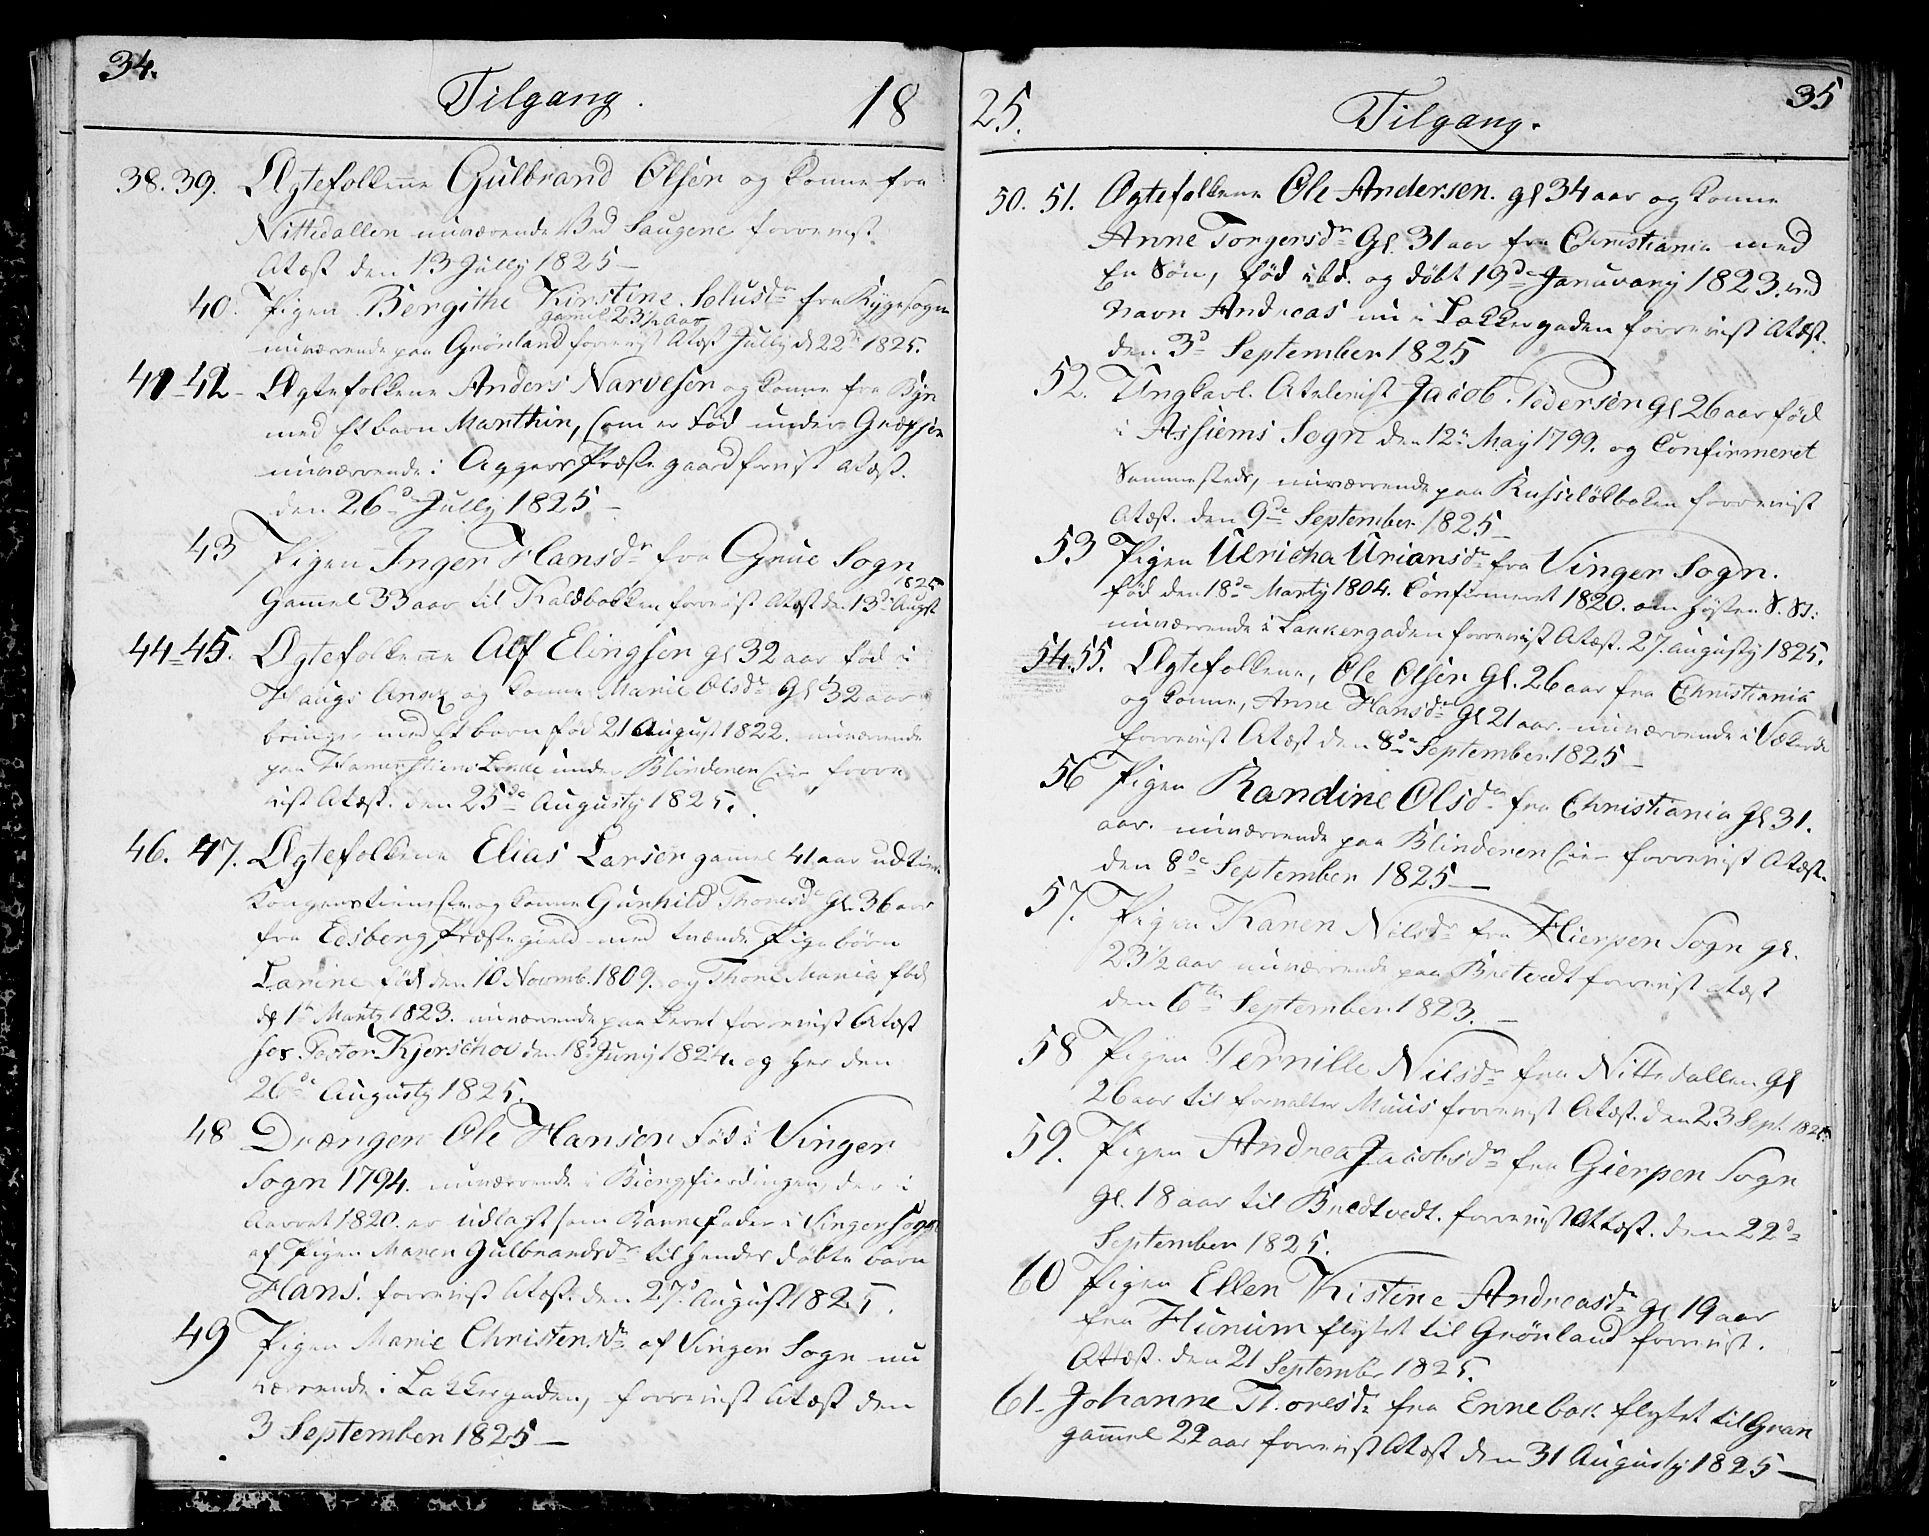 34.
Tilgang.
18
38. 39. Ægtefolkene Gulbrand Olsen og Konne fra
Nittedallen nuværende Ved Saugene forrevist
Atæst den 13 Jully 1825 –
40. Pigen Bergithe Kirstine Solusdr fra Rygesogn
gamel 23 1/2 aar
nuværende paa Grønland forrevist Atæst Jully d 22d 1825.
41–42 – Ægtefolkene Anders Narvesen og Konne fra Byn
med Et barn Marthin, som er Fød under Græfsen
nuværende i Aggers Præstegaard frvist Atæst.
den 26d Jully 1825 –
43 Pigen Inger Hansdr fra Grue Sogn
Gammel 33 aar til Kaldbakken forrevist Atæst den 13d Augst 1825
44–45. Ægtefolkene Alf Elingsen gl 32 aar fød i
Haugs Anex og Konne Marie Olsdr Gl 32 aar
bringer med Et barn fød 21 August 1822. nuværende
paa Hamerstiens Løkke under Blinderen Eier forre
vist Atæst. den 25de Augusty 1825.
46. 47. Ægtefolkene Elias Larsen gamel 41 aar udtient
Kongens tieneste og Konne Gunhild Thoresdr Gl. 36 aar
fra Edsberg Præstegield med tvænde Pigebørn
Larine fød den 10 Novemb. 1809. og Thone Maria fød
d 1te Martz 1823. nuværende paa Leret forrevist Atæst
hos Pastor Kjerschov den 18d Juny 1824 og her den
26de Augusty 1825.
48 Drængen Ole Hansen Fød i Vinger
Sogn 1794. nuværende i Biergfierdingen, der i
Aaret 1820. er udlagt som Barnefader i Vinger Sogn
af Pigen Maren Gulbrandsdr til hendes døbte barn
Hans. forrevist Atæst. den 27d August 1825.
49 Pigen Marie Christensdr af Vinger Sogn nu
værende i Lakkergaden, forrevist Atæst den
3 September 1825 –
25.
Tilgang.
35
50. 51. Ægtefolkene Ole Andersen. gl 34 aar og Konne
Anne Torgersdr Gl. 31 aar fra Christiania med
En Søn, fød ibd. og døbt 19de Januvary 1823. ved
Navn Andreas nu i Lakkergaden forrevist Atæst.
den 3d September 1825
52. Ungkarl. Atelerist Jacob Pedersen gl 26 aar fød
i Assiems Sogn den 12te May 1799. og Confirmeret
Sammesteds, nuværende paa Russeløkbaken forrevist
Atæst. den 9de September 1825 –
53 Pigen Ulricha Uriansdr fra Vinger Sogn.
fød den 18de Marty 1804. Confirmeret 1820. om Høsten S. St:
nuværende i Lakkergaden forrevist Atæst. 27. Augusty 1825.
54. 55. Ægtefolkene, Ole Olsen Gl. 26 aar fra Christiania
og Konne, Anne Hansdr Gl 21 aar. nuværende i Vækerøe
forrevist Atæst den 8de September 1825 –
56 Pigen Randine Olsdr fra Christiania Gl 31.
aar. nuværende paa Blinderen Eier forrevist Atæst.
den 8de September 1825 –
57. Pigen Karen Nilsdr fra Hierpen Sogn gl.
23 1/2 aar nuværende paa Bretvedt forrevist Atæst
den 6te September 1823. –
58 Pigen Pernille Nilsdr fra Nittedallen Gl
26 aar til forvalter Muus forrevist Atæst. den 23 Sept. 1825.
59. Pigen Andrea Jacobsdr fra Gierpen Sogn
Gl. 18 aar til Bredtvedt. forrevist Attæst. den 22d
September 1825.
60 Pigen Ellen Kistine Andreasdr Gl 19 aar
fra Hurum flytet til Grønland forrevist.
Attæst. den 21 September 1825.
61– Johanne Thoresdr fra Ennebak flytet til Gran
gammel 22 aar forrevist Atæst den 31 Augusty 1825 –